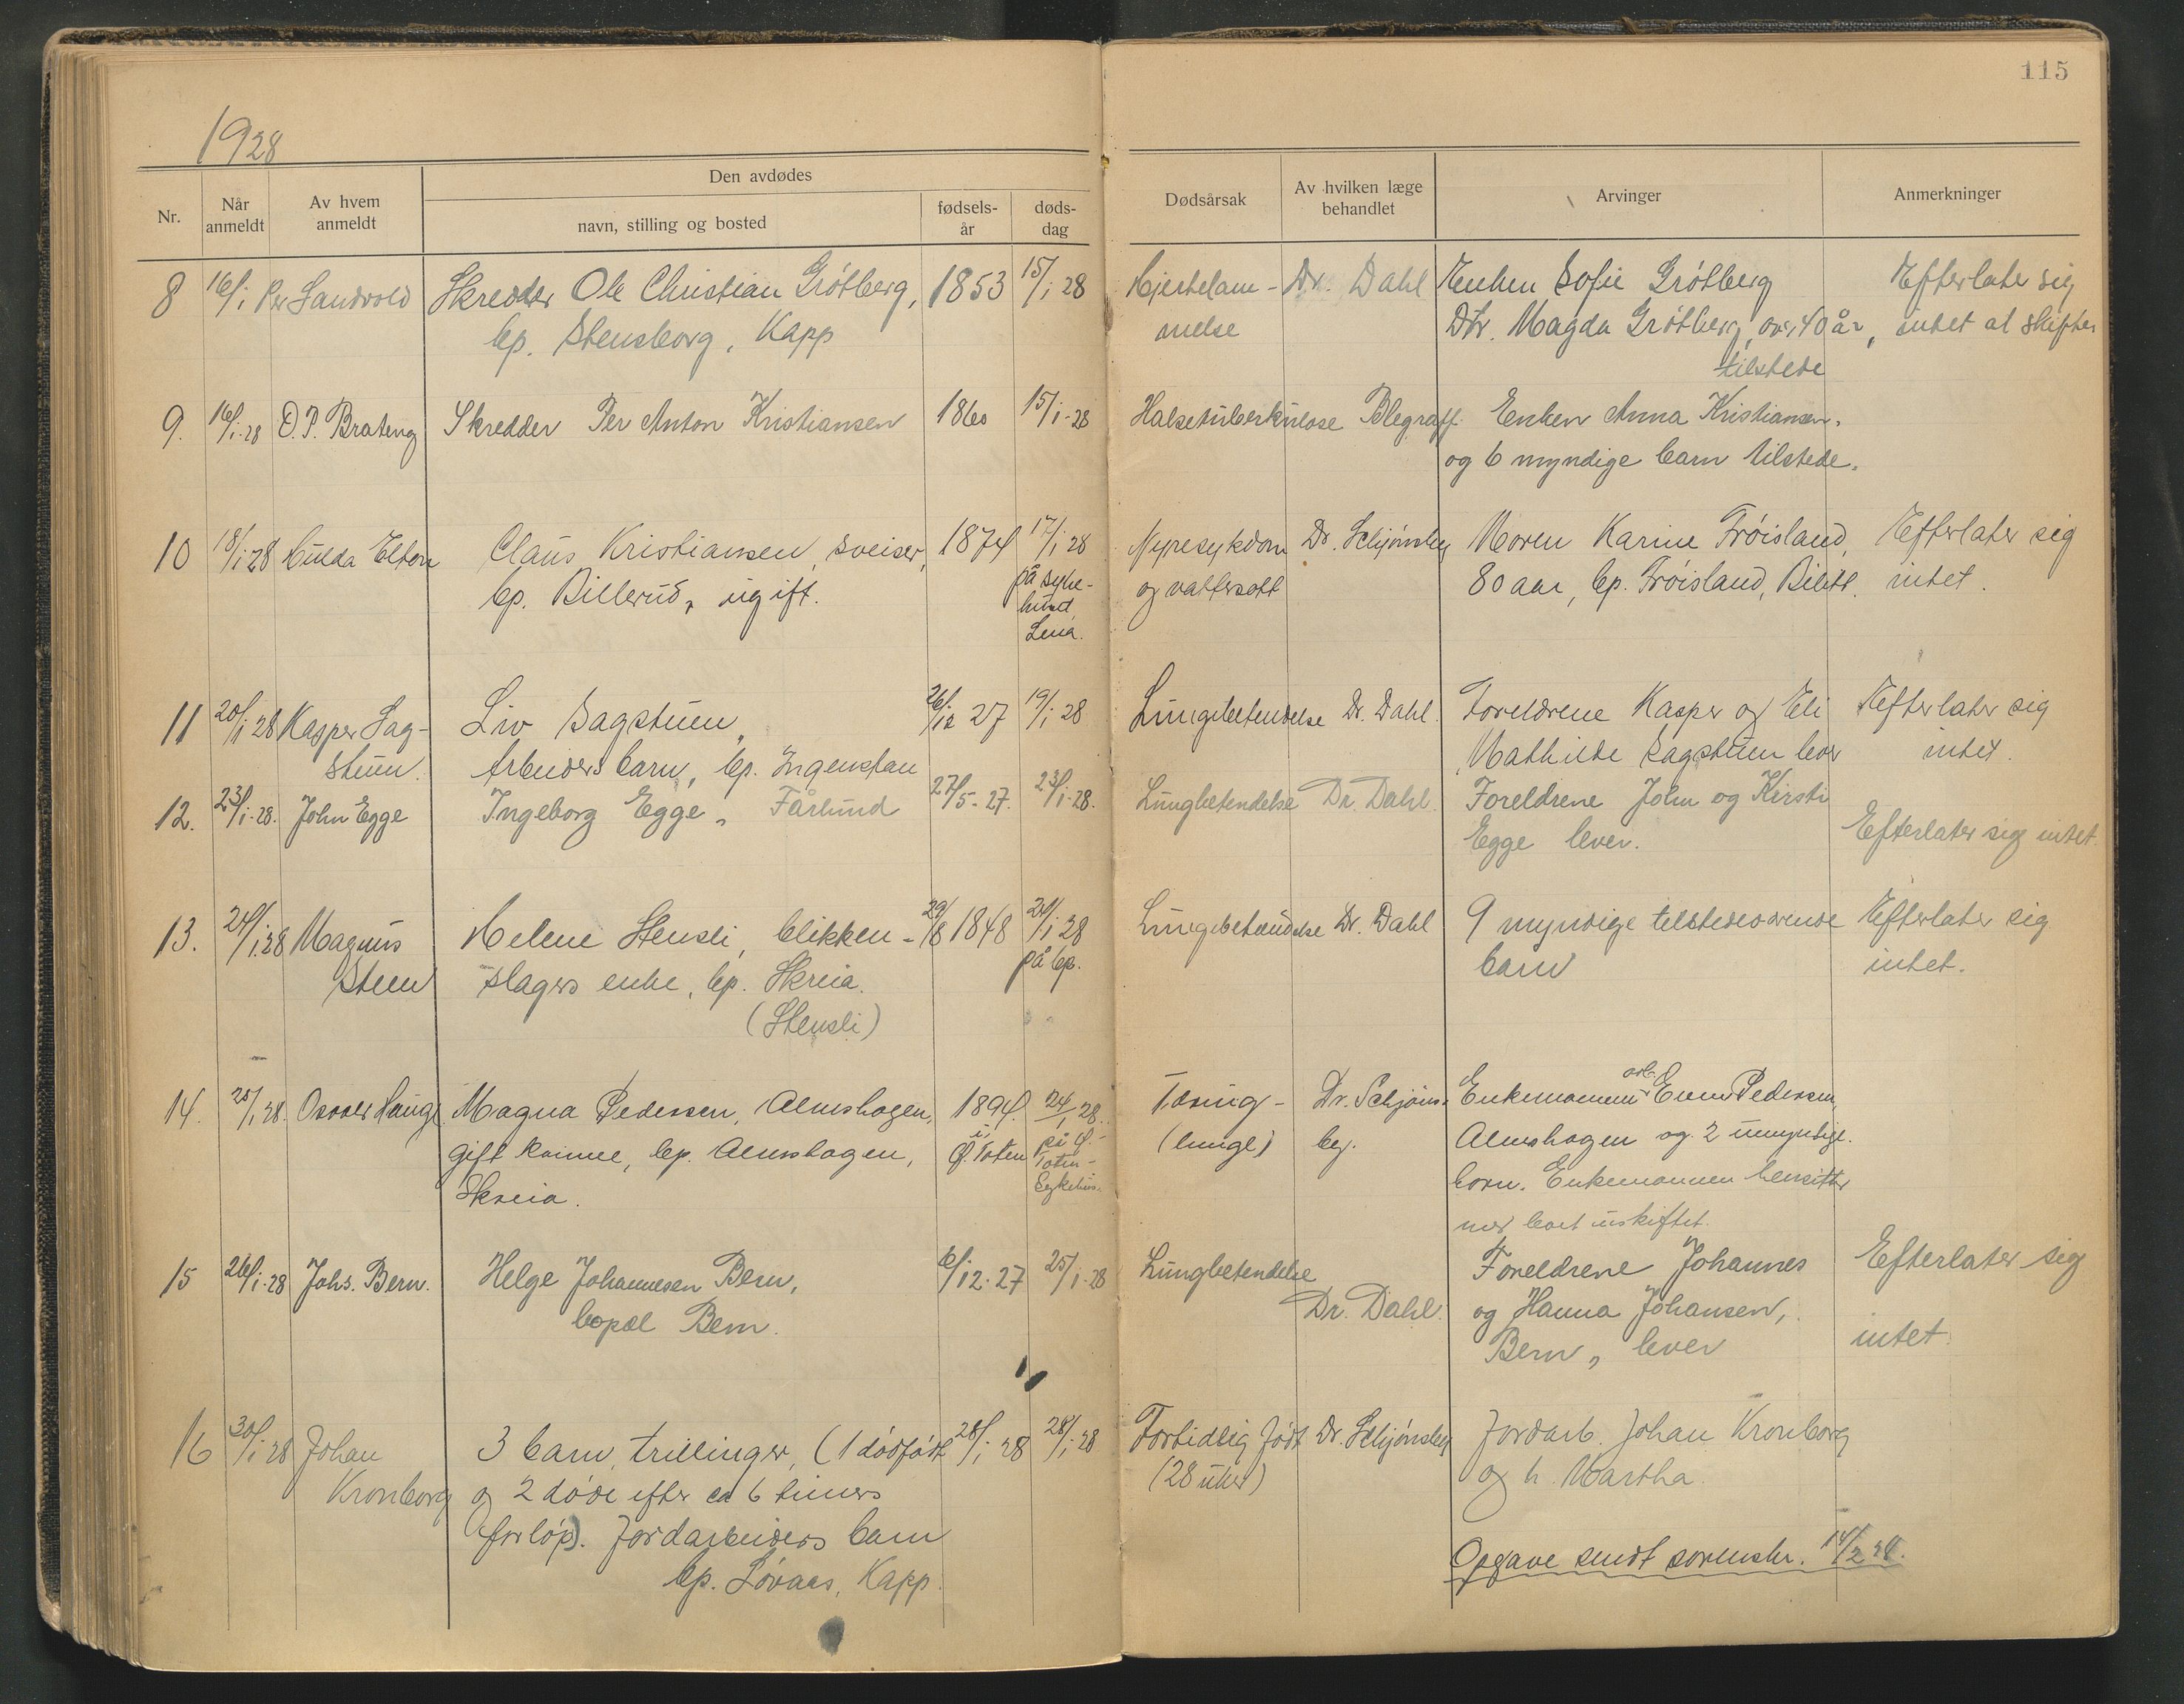 115
1928
Nr.
Når anmeldt
Av hvem anmeldt
Den avdødes
navn, stilling og bosted
fødsels-år
døds-dag
Dødsårsak
Av hvilken læge behandlet
Arvinger
Anmerkninger
8 16/1 Per Sandvold Skredder Ole Christian Grøtberg, 1853 15/1 28 Hjertelam- Dr. Dahl Enken Sofie Grøtberg Efterlater sig
bp. Stensborg, Kapp melse Dtr. Magda Grøtberg, over 40 år, intet at skifter
tilstede
9. 16/1-28 O.P. Brateng Skredder Per Anton Kristiansen 1860 15/1-28 Halsetuberkulose Blegraff. Enken Anna Kristiansen.
og 6 myndige barn tilstede.
10 18/1 28 Hulda Elton Claus Kristiansen, sveiser, 1874 17/1 28 Nyresykdom Dr. Schjønsby Moren Karine Frøisland, Efterlater sig
bp. Billerud, ugift. på syke- og vattersott 80 aar, bp. Frøisland, Bilitt. intet.
huset
Lena.
11 20/1 28 Kasper Sag- Liv Sagstuen, 26/12 27 19/1 28 Lungebetendelse Dr. Dahl. Foreldrene Kasper og Eli Efterlater sig
stuen. Arbeiders barn, bp. Ingenstau Mathilde Sagstuen lever intet.
12. 23/1-28. John Egge Ingeborg Egge, Fårlund 27/5-27. 23/1-28. Lungbetendelse Dr. Dahl. Foreldrene John og Kirsti
Egge lever. Efterlater sig intet.
13. 24/1.28 Magnus Helene Stensli, blikken- 29/8 1848 24/1 28 Lungebetændelse Dr. Dahl 9 myndige tilstedeværende Efterlater sig
Steen slagers enke, bp. Skreia. på bp. barn intet.
(Stensli)
14. 25/1 28. Osvver Hauge Magna Pedersen, Almshagen, 1894. 24/1 28. Tæring- Dr. Schjøns- Enkemannen arb. Even Pedersen,
gift kvinne, bp. Almshagen, i Ø. Toten på Ø.- (lunge) by. Almshagen og 2 umyndige.
Skreia. Toten- barn. Enkemannen hensitter
Sykehus. med boet uskiftet.
15 26/1-28 Johs. Bern. Helge Johannesen Bern, 6/12-27 25/1-28 Lungbetendelse Foreldrene Johannes Efterlater sig
bopæl Bern. Dr. Dahl. og Hanna Johansen,
Bern, lever intet.
16 30/1 28 Johan 3 barn, trillinger, (1 dødfødt 28/1 28 28/1-28 Fortidlig født Dr. Schjønsby Jordarb. Johan Kronborg
Kronborg og 2 døde efter ca 6 timers (28 uker) og h. Martha.
forløp). Jordarbeiders barn
bp. Løvaas, Kapp.
Opgave sendt sorenskr. 14/2 28.